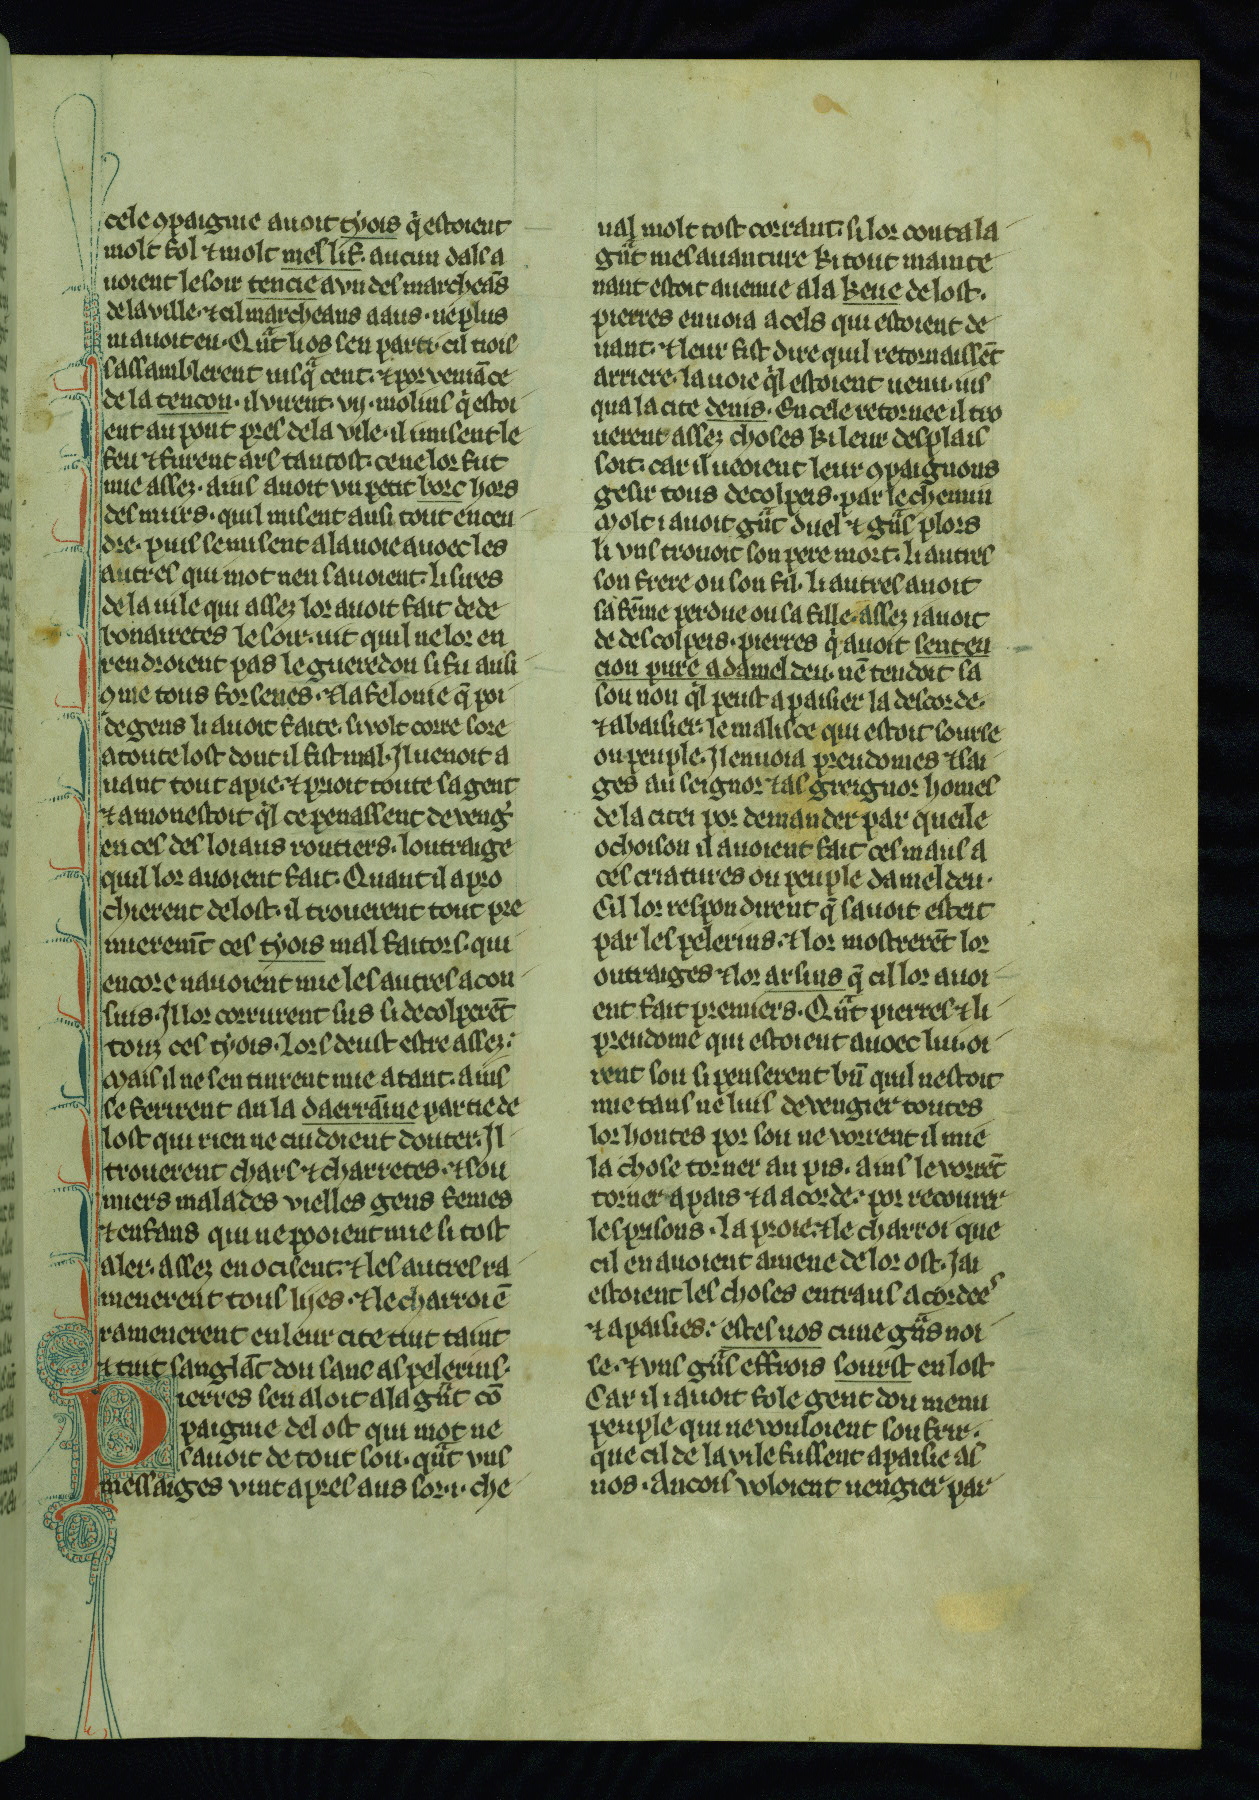 cele ꝯpaignie auoit tyois q̇ estoient
molt fol ⁊ molt mes lif. aucun dals a
uoient le soir tencie a vn des marcheãs
de la ville. ⁊ cil marcheans aaus. ne plus
ni auoit eu. Quãt li os sen parti. cil tiois
sassamblerent iusq̃ cent. ⁊ por veniãce
de la tencon. il virent. vij. molins q̇ estoi
ent au pont pres de la vile. il misent le
feu ⁊ furent ars tantost. ce ne lor fut
mie assez. ains auoit vn petit borc hors
des murs. quil misent ausi tout encen
dre. puis se misent a la uoie auoec les
autres qui mot nen sauoient. li sires
de la uile qui assez lor auoit fait de de
bonairetes le soir. uit quil ne lor en
rendroient pas le gueredon si fu ausi
ꝯme tous forsenes. ⁊ la felonie q̃ poi
de gens li auoit faite. si volt corre sore
a toute lost dont il fist mal. Il uenoit a
uant tout apie. ⁊ prioit toute sa gent
⁊ amonestoit q̇l ce penassent de veng̉
en ces desloiaus routiers. loutraige
quil lor auoient fait. Quant il apro
chierent de lost. il trouerent tout pre
mieremt̃ ces tyois mal faitors. qui
encore nauoient mie les autres acon
suis. Il lor corrurent sus si decolperẽt
touz ces tyois. Lors deust estre assez.
Mais il ne sen tinrent mie atant. ains
se ferirent an la daerrãine partie de
lost qui rien ne cuidoient douter. Il
trouerent chars ⁊ charretes. ⁊ sou
miers malades vielles gens femes
⁊ enfans qui ne pooient mie si tost
aler. assez en ocisent. ⁊ les autres ra
menerent tous lijes. ⁊ le charroi ẽ
ramenerent en leur cite tint taint
⁊ tuit sanglãt dou sanc as pelerins.
Pierres sen aloit a la gũt cõ
paignie de lost qui mot ne
sauoit de tout sou. qũt vns
messaiges vint apres aus sor. i. che
ual molt tost corrant. si lor conta la
gũt mesauanture ki tout mainte
nant estoit auenue a la keue de lost.
pierres enuoia a cels qui estoient de
uant. ⁊ leur fist dire quil retornaissẽt
arriere. la uoie q̇l estoient uenu. ius
qua la cite denis. En cele retornee il tro
uerent assez choses ki leur desplais
soit. car il ueoient leur ꝯpaignons
gesir tous decolpeis. par le chemin
Molt i auoit gũt duel ⁊ gũs plors
li vns trouoit son pere mort. li autres
son frere ou son fil. li autres auoit
sa fẽme perdue ou sa fille. assez i auoit
de descolpeis. pierres q̇ auoit senten
cion pure a damel deu. nẽ tendoit sa
sou non q̇l peust apaisier la descorde.
⁊ abaisier. le malisce qui estoit sourse
ou peuple. Il enuoia preudomes ⁊ sai
ges au seignor ⁊ as greignor homes
de la citei por demander par queile
ochoison il auoient fait ces maus a
ces criatures ou peuple damel deu.
Cil lor respondirent q̃ sauoit esteit
par les pelerins. ⁊ lor mostrerẽt lor
outraiges ⁊ lor arsins q̃ cil lor auoi
ent fait premiers. Qũt pierres ⁊ li
preudome qui estoient auoec lui. oi
rent sou si penserent bñ quil nestoit
mie tans ne luis de vengier toutes
lor hontes por sou ne vorrent il mie
la chose torner au pis. ains le vorrẽt
torner a pais ⁊ a acorde. por recourer
les prisons. la proie. ⁊ le charroi que
cil en auoient amene de lor ost. Jai
estoient les choses entraus acordees
⁊ apaisies. estes uos cune gũs noi
se. ⁊ vns gũs effrois sourst en lost
Car il i auoit fole gent dou menu
peuple qui ne vouloient soufrir.
que cil de la vile fussent apaisie as
nos. Ancois voloient uengier par